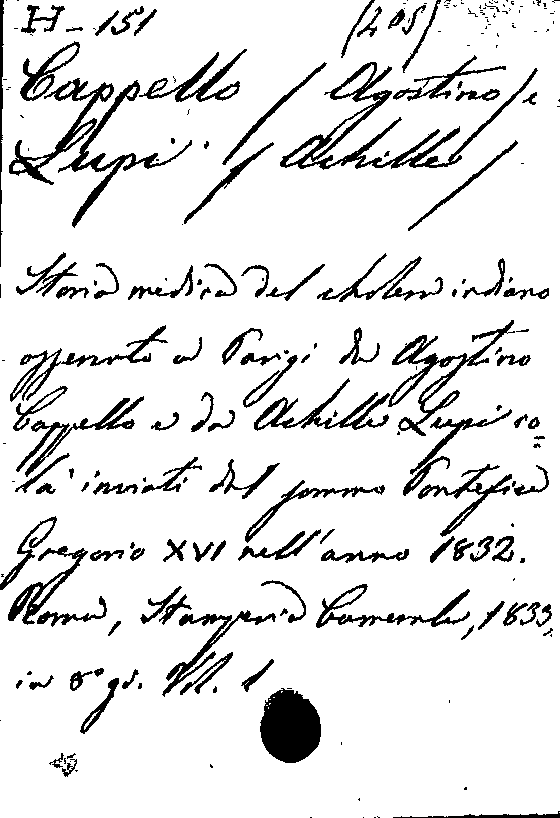 H-151 (205)
Cappello / Agostino / e
Lupi / Achille /
Storia medica del cholera indiano
osservato a Parigi da Agostino
Cappello e da Achille Lupi co=
là inviati dal sommo Pontefice
Gregorio XVI nell'anno 1832.
Roma, Stamperia Camerale, 1833,
in 8° gr. Vol. 1